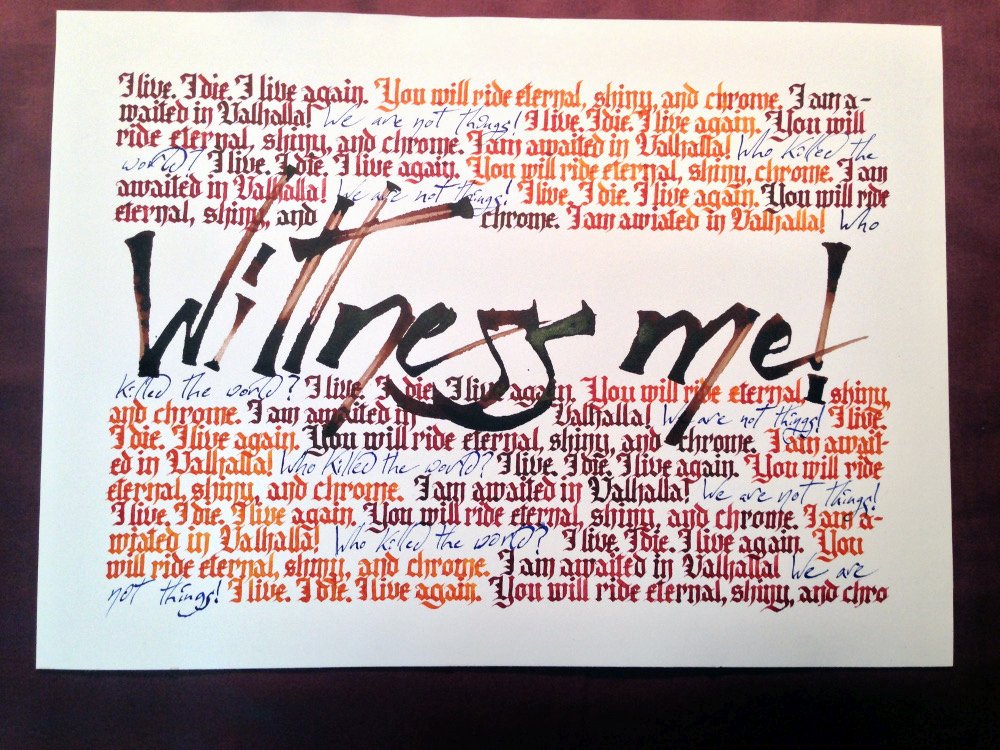 I live. I die. I live again. You will ride eternal, shiny, and chrome. I am a-
waited in Valhalla! We are not things! I live. I die. I live again. You will
ride eternal, shiny, and chrome. I am awaited in Valhalla! Who killed the
world? I live. I die. I live again. You will ride eternal, shiny, chrome. I am
awaited in Valhalla! We are not things! I live. I die. I live again. You will ride
eternal, shiny, and chrome. I am awiated in Valhalla! Who
Wittness me!
killed the world? I live. I die. I live again. You will ride eternal, shiny,
and chrome. I am awaited in Valhalla! We are not things! I live.
I die. I live again. You will ride eternal, shiny, and chrome. I am await-
ed in Valhalla! Who killed the world? I live. I die. I live again. You will ride
eternal, shiny, and chrome. I am awaited in Valhalla! We are not things!
I live. I die. I live again. You will ride eternal, shiny, and chrome. I am a-
wiated in Valhalla! Who killed the world? I live. I die. I live again. You
will ride eternal, shiny, and chrome. I am awaited in Valhalla! We are
not things! I live. I die. I live again. You will ride eternal, shiny, and chro